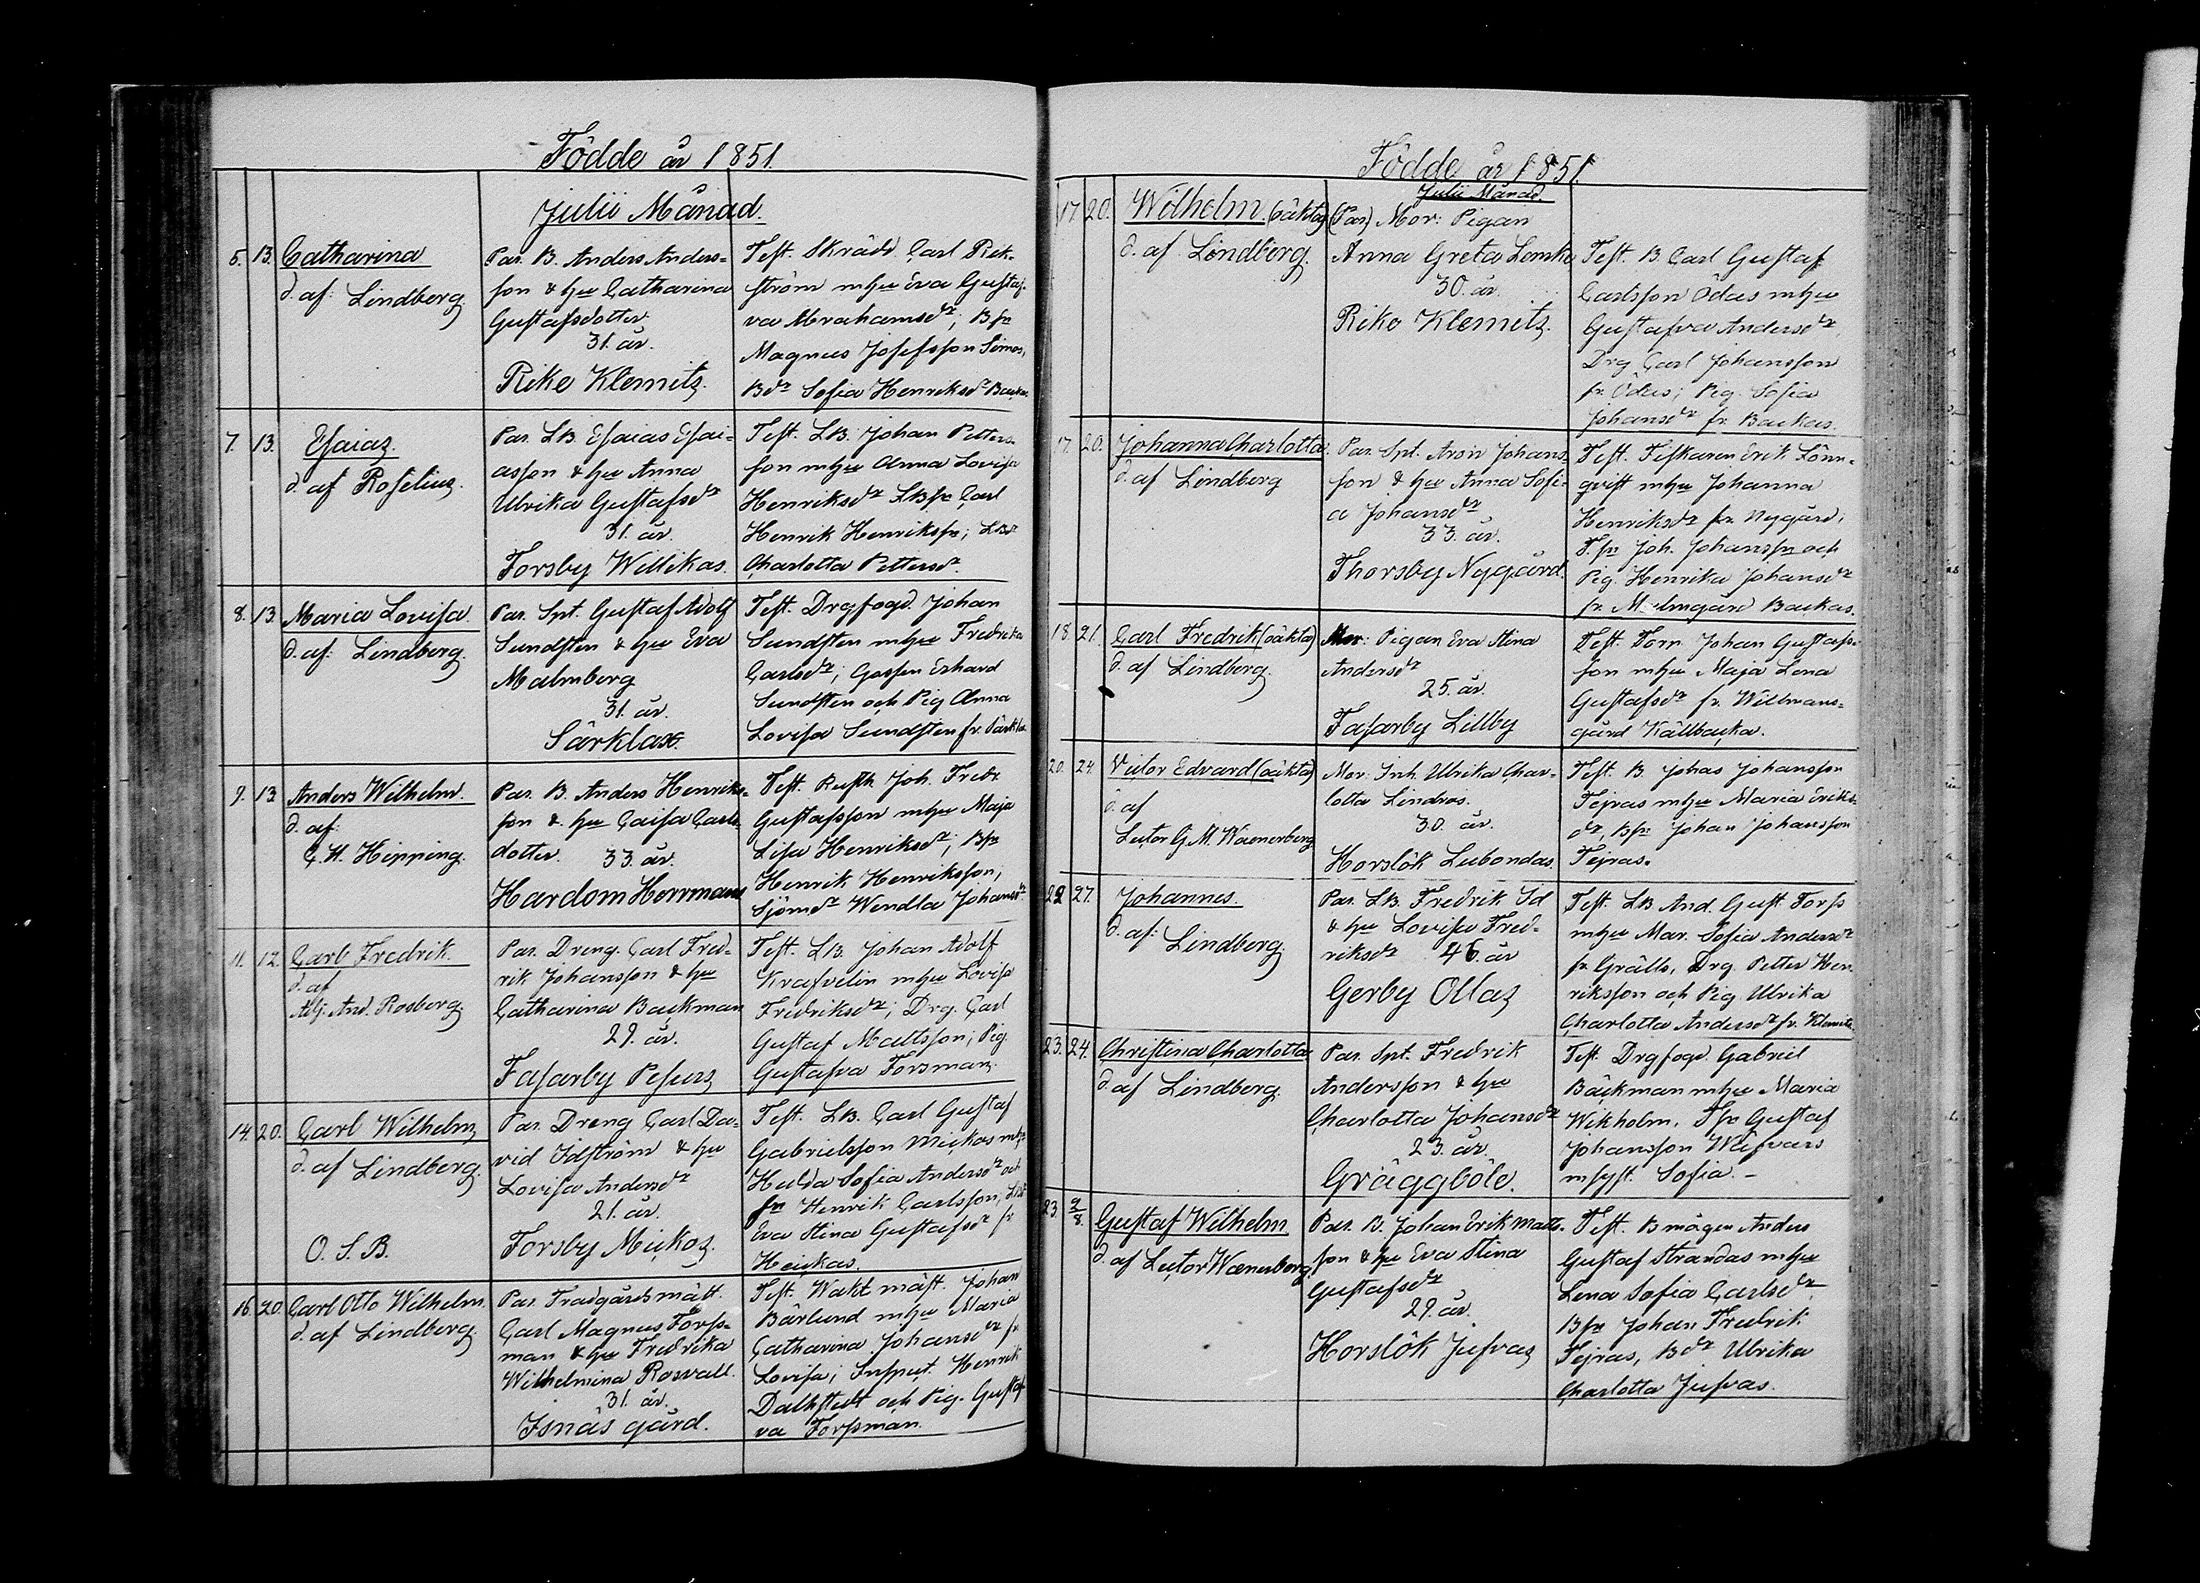 Födde år 1851.
Julii Månad.
5. 13. Catharina
d. af: Lindberg.
Par. B. Anders Anders-
son & hu Catharina
Gustafsdotter
31. år.
Rike Klemitz.
Test. Skrädd. Carl Rik-
ström mhu Eva Gustaf-
va Abrahamsdr; Bsn
Magnus Josefsson Simos,
Bdr Sofia Henriksdr Backas.
7. 13. Esaias.
d. af Roselius.
Par. LB. Esaias Esai-
asson & hu Anna
Ulrika Gustafsdr
31. år.
Forsby Willikas.
Test. LB. Johan Petters-
son mhu Anna Lovisa
Henriksdr LBsn Carl
Henrik Henrikssn; LBdr
Charlotta Pettersdr.
8. 13. Maria Lovisa.
d. af: Lindberg.
Par. Spt. Gustaf Adolf
Sundsten & hu Eva
Malmberg
31. år.
Särklax.
Test. Drgfogd. Johan
Sundsten mhu Fredrika
Carlsdr; Gossen Erhard
Sundsten och Pig Anna
Lovisa Sundsten fr. Särklax.
9. 13. Anders Wilhelm.
d. af:
G. H. Hipping.
Par. B. Anders Henriks-
son & hu Caisa Carls-
dotter. 33. år.
Hardom Herrmans
Test. Rusth. Joh. Fredr
Gustafsson mhu Maja
Lisa Henriksdr; Bsn
Henrik Henriksson,
Sjömdr Wendla Johansdr.
11. 12. Carl Fredrik.
d. af
Adj. And. Rosberg.
Par. Dreng. Carl Fred-
rik Johansson & hu
Catharina Backman
29. år.
Fasarby Pesurs
Test. LB. Johan Adolf
Krafvelin mhu Lovisa
Fredriksdr; Drg. Carl
Gustaf Mattsson; Pig.
Gustafva Forsman.
14. 20. Carl Wilhelm,
d. af Lindberg.
O. S. B.
Par. Dreng Carl Da-
vid Idström & hu
Lovisa Andersdr
21. år.
Forsby Mickos.
Test. LB. Carl Gustaf
Gabrielsson Mickos mhu
Hulda Sofia Andersdr och
sn Henrik Carlsson, LBdr
Eva Stina Gustafsdr fr
Heickas.
16. 20. Carl Otto Wilhelm.
d. af Lindberg.
Par. Tradgårdsmäst.
Carl Magnus Forss-
man & hu Fredrika
Wilhelmina Roswall.
31. år.
Isnäs gård.
Test. Wakt mäst. Johan
Bärlund mhu Maria
Catharina Johansdr fr
Lovisa; Inspect. Henrik
Dalhstedt och Pig. Gustaf-
va Forssman.
Födde år 1851.
Julii Månad.
17. 20. Wilhelm. (oäkta)
d. af Lindberg.
(Par) Mor: Pigan
Anna Greta Lemke
30. år.
Rike Klemitz.
Test. B. Carl Gustaf
Carlsson Ödas mhu
Gustafva Andersdr,
Drg Carl Johansson
fr. Ödas; Pig. Sofia
Johansdr fr. Backas.
17. 20. Johanna Charlotta.
d. af Lindberg
Par. Spt. Aron Johans-
son & hu Anna Sofi-
a Johansdr
33. år.
Thorsby Nygård.
Test. Fiskaren Erik Lönn-
qvist mhu Johanna
Henriksdr fr. Nygård;
T.sn Joh. Johanssn och
Pig. Henrika Johansdr
fr. Malmgård Backas.
18. 21. Carl Fredrik (oäkta)
d. af Lindberg.
Mor: Pigan Eva Stina
Andersdr
25. år.
Fasarby Lillby
Test. Torp. Johan Gustafs-
son mhu Maja Lena
Gustafsdr fr. Willmans-
gård Källbacka.
20. 24. Victor Edvard (oäkta)
d. af
Lector G. M. Waenerberg
Mor: Inh. Ulrika Char-
lotta Lindros.
30. år.
Horslök Lubondas.
Test. B. Johas Johansson
Tejras mhu Maria Eriks-
dr, Bsn Johan Johansson
Tejras.
22 27. Johannes.
d. af: Lindberg.
Par. LB. Fredrik Id
& hu Lovisa Fred-
riksdr 46. år
Gerby Ollas
Test. LB And. Gust. Torss
mhu Mar. Sofia Andersdr
fr. Grälls, Drg. Petter Hen-
riksson och Pig Ulrika
Charlotta Andersdr fr. Klemitz.
23. 24. Christina Charlotta
d. af Lindberg.
Par. Spt. Fredrik
Andersson & hu
Charlotta Johansdr
23. år.
Gräggböle.
Test. Drgfogd. Gabriel
Bäckman mhu Maria
Wikholm. Tsn Gustaf
Johansson
msyst. Sofia. –
23. 2/8. Gustaf Wilhelm
d. af Lector Wænerberg
Par. B. Johan Erik Matts-
son & hu Eva Stina
Gustafsdr
29. år.
Horslök Jufvas
Test. B mågen Anders
Gustaf Strandas mhu
Lena Sofia Carlsdr,
Bsn Johan Fredrik
Tejras, Bdr Ulrika
Charlotta Jufvas.